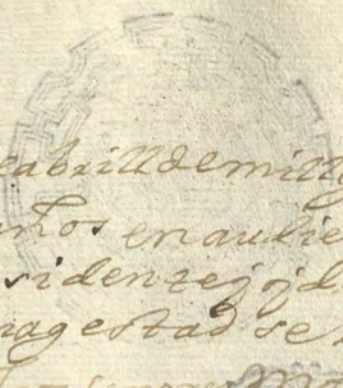 eabrill de mill
años en audie
sidente y oyd
magestad se